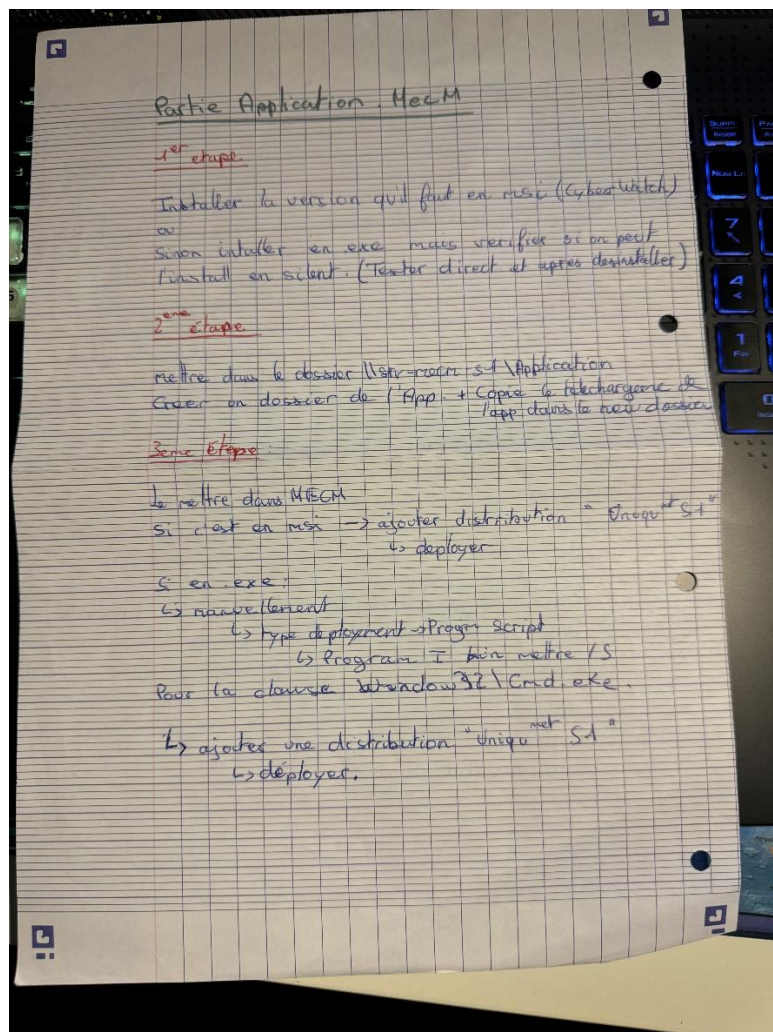 Partie Application MecM
1er etape
Installer la version qu'il faut en msi (CyberWatch)
ou
Sinon intaller en exe mais verifier si on peut
l'install en silent. (Tester direct et apres desinstaller)
2eme étape
mettre dans le dossier \\srv-mecm-s1\Application
Créer un dossier de l'App. + Copie le telechargeme de
l'app dans le new dossier
3eme Étape :
Le mettre dans MECM
Si c'est en msi → ajouter distribution "Uniquᵐᵉᵗ S1"
↳ deployer
Si en .exe :
↳ manuellement
↳ type deployement → Progm Script
↳ Program I bien mettre /S
Pour la clause Window32\Cmd.exe.
↳ ajouter une distribution "Uniquᵐᵉᵗ S1"
↳ déployer.
7
4
1